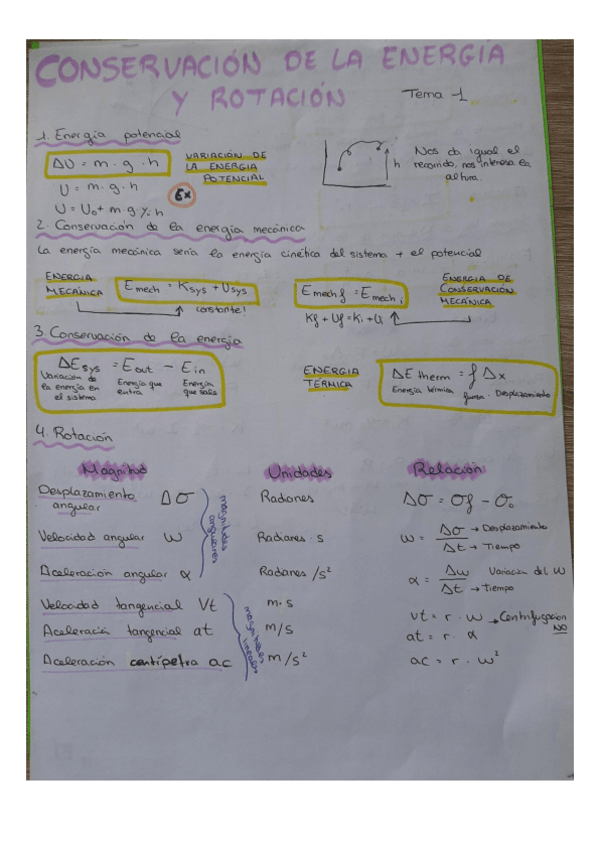 CONSERVACIÓN DE LA ENERGIA
Y ROTACIÓN Tema -1
1. Energía potencial
ΔU = m·g·h
VARIACIÓN DE LA ENERGIA POTENCIAL
h
Nos da igual el recorrido, nos interesa la altura.
U = m·g·h
Ex
U = U₀ + m·g·h
2. Conservación de la energía mecánica
La energía mecánica sería la energía cinética del sistema + el potencial
ENERGIA MECÁNICA
Emech = Ksys + Usys
constante!
Emechf = Emechi
Kf + Uf = Ki + Ui
ENERGIA DE CONSERVACIÓN MECÁNICA
3. Conservación de la energía
ΔEsys = Eout - Ein
Variación de la energía en el sistema
Energía que entra
Energía que sale
ENERGIA TÉRMICA
ΔEtherm = f Δx
Energía térmica fuerza · Desplazamiento
4. Rotación
Magnitud Unidades Relación
Desplazamiento angular Δσ Radianes Δσ = σf - σ₀
Velocidad angular ω Radianes · s ω = Δσ/Δt → Desplazamiento → Tiempo
Aceleración angular α Radianes/s² α = Δω/Δt Variación del ω → Tiempo
magnitudes angulares
Velocidad tangencial Vt m·s vt = r · ω → Centrifugación NO
Aceleración tangencial at m/s at = r · α
Aceleración centípetra ac m/s² ac = r · ω²
magnitudes lineales